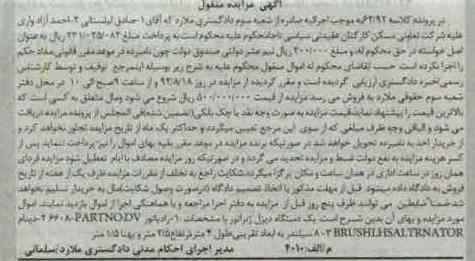 آگهی مزایده منقول
در پرونده کلاسه ۶۲/۹۲ به موجب اجرائیه صادره از شعبه سوم دادگستری ملارد که آقای ۱-صادق لیلستانی ۲-احمد آزاد واری
علیه شرکت تعاونی مسکن کارکنان عقیدتی سیاسی ناجا محکوم علیه محکوم است به پرداخت مبلغ ۲۳۱/۰۲۵/۰۸۴ ریال به عنوان
اصل خواسته در حق محکوم له، و مبلغ ۲۰۰/۰۰۰ ریال نیم عشر دولتی صندوق دولت چون نامبرده در موعد مقرر قانونی مفاد حکم
را اجرا نکرده است حسب تقاضای محکوم له اموال منقول محکوم علیه به شرح زیر بوسیله این مرجع توقیف و توسط کارشناس
رسمی/خبره دادگستری ارزیابی گردیده است و مقرر گردیده از مزایده در روز ۹۲/۸/۱۸ و از ساعت ۹ صبح الی ۱۰ در محل دفتر
شعبه سوم حقوقی ملارد به فروش می رسد مزایده از قیمت ۵۰۰/۰۰۰/۰۰۰ ریال شروع می شود ومال متعلق به کسی است که
بالاترین قیمت را پیشنهاد نماید قیمت مزایده به صورت وجه نقد یا چک بانکی (تضمین شده) فی المجلس از برنده مزایده دریافت
می شود و الباقی وجه ظرف مبلغی که از سوی این مرجع تعیین میگردد و حداکثر یک ماه از تاریخ مزایده تجاوز نخواهد کرد و
از خریدار اخذ به نامبرده تحویل خواهد شد در صورتیکه برنده مزایده در موعد مقرر بقیه بهای اموال را نپرداخت نماید پس از
کسر هزینه مزایده به نفع دولت ضبط و مزایده تجدید می گردد و در صورتیکه روز مزایده مصادف با ایام تعطیل شود مزایده فردای
همان روز در ساعت اداری در همان ساعت و مکان برگزار میگردد شکایت راجع به تخلف از مقررات مزایده ظرف یک از هفته از تاریخ
فروش به دادگاه داده میشود قبل از مهلت مذکور یا اتخاذ تصمیم دادگاه (در صورت وصول شکایت) مال به خریدار تسلیم نخواهد
شد ضمنا متقاضین می توانند ظرف پنج روز قبل از مزایده به دفتر اجرا مراجعه و با هماهنگی اجرا از اموال بازدید نمایند. اموال
مورد مزایده و بهای آن بدین شرح است. یک دستگاه دیزل ژنراتور با مشخصات ۱-رادیاتور PARTNO.DV-۶۶۰۸ ۲-دینام
BRUSHLHSALTRNATOR ۳-۸ سیلندر به ابعاد تقریبی طول ۴ متر قرتفاع ۲/۵ متر و پهنا ۱/۵ متر
م/الف:۴۰۱۰ مدیر اجرای احکام مدنی دادگستری ملارد/سلمانی